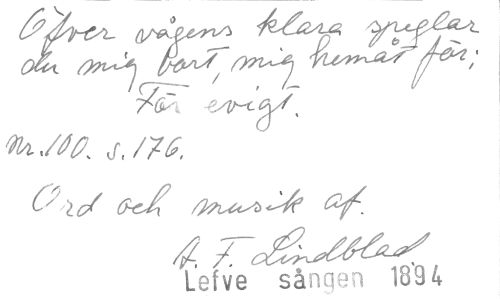 Öfver vågens klara speglar
du mig bort, mig hemåt för;
För evigt.
Nr. 100. s. 176.
Ord och musik af.
A. F. Lindblad.
Lefve sången 1894